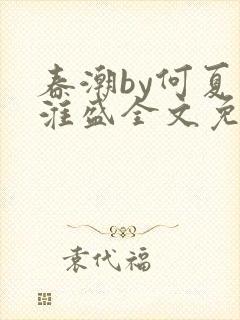 春潮by何夏
淮盛全文免
袁代福